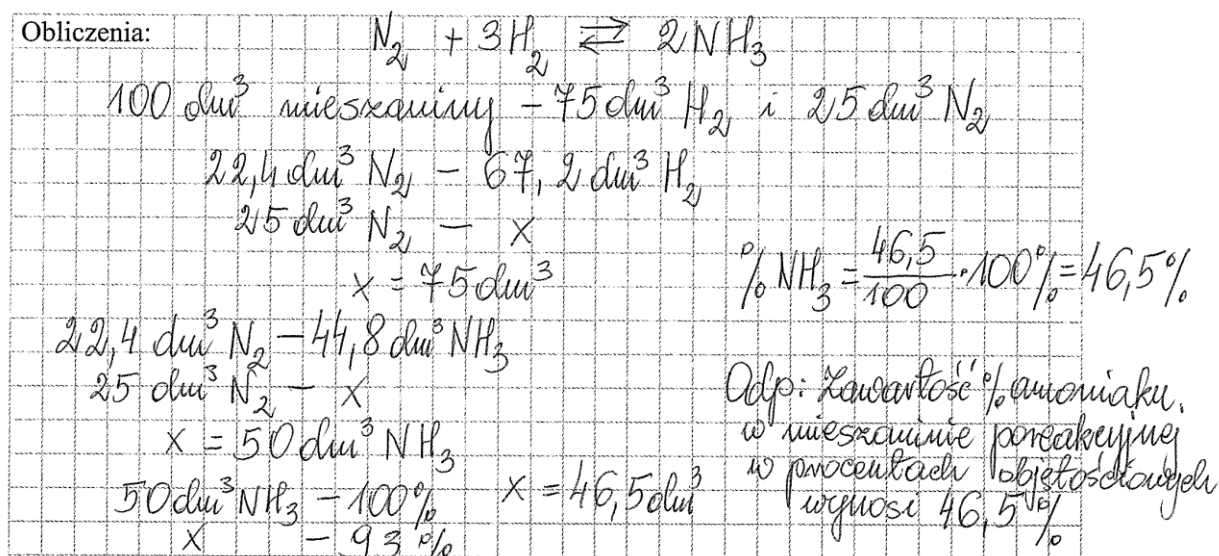 Obliczenia:
N₂ + 3H₂ ⇄ 2NH₃
100 dm³ mieszaniny – 75 dm³ H₂ i 25 dm³ N₂
22,4 dm³ N₂ – 67,2 dm³ H₂
25 dm³ N₂ – x
x = 75 dm³
22,4 dm³ N₂ – 44,8 dm³ NH₃
25 dm³ N₂ – x
x = 50 dm³ NH₃
50 dm³ NH₃ – 100%
x – 93%
x = 46,5 dm³
% NH₃ = 46,5/100 · 100% = 46,5%
Odp: Zawartość % amoniaku
w mieszaninie poreakcyjnej
w procentach objętościowych
wynosi 46,5%